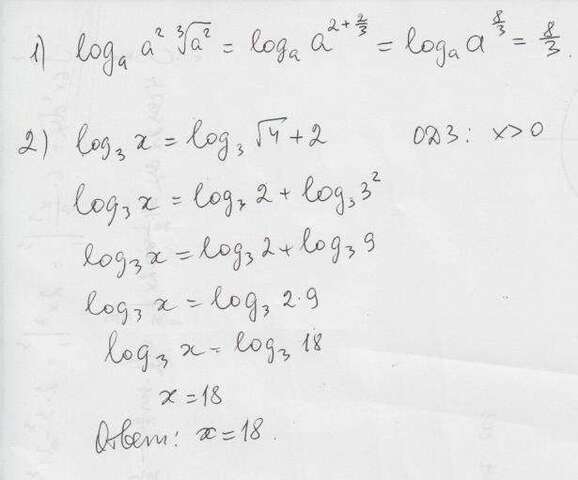 1) log_a a² ∛a² = log_a a^(2+2/3) = log_a a^(8/3) = 8/3.
2) log₃ x = log₃ √4 + 2 ОДЗ: x>0
log₃ x = log₃ 2 + log₃ 3²
log₃ x = log₃ 2 + log₃ 9
log₃ x = log₃ 2·9
log₃ x = log₃ 18
x = 18
Ответ: x = 18.